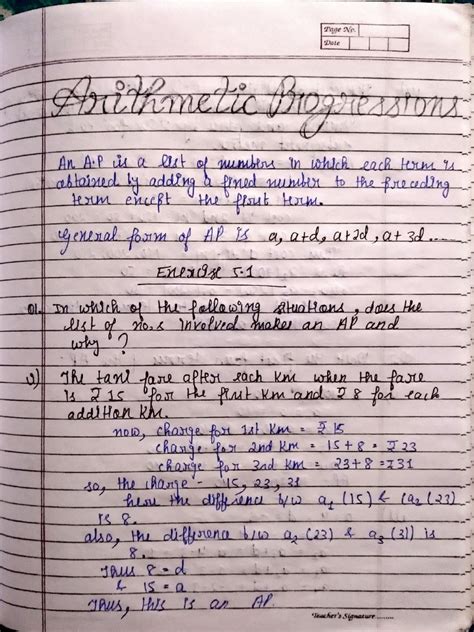 Page No.
Date
Arithmetic Progressions
An A.P is a list of numbers in which each term is
obtained by adding a fined number to the preceding
term except the first term.
General form of AP is a, a+d, a+2d, a+3d.....
Exercise 5.1
Q1. In which of the following situations, does the
list of no.s involved makes an AP and
why?
i) The taxi fare after each Km when the fare
is ₹ 15 for the first Km and ₹ 8 for each
addition Km.
now, charge for 1st Km = ₹ 15
charge for 2nd Km = 15+8 = ₹ 23
charge for 3rd Km = 23+8 = ₹31
so, the charge - 15, 23, 31
here the difference b/w a₁ (15) & (a₂ (23)
is 8.
also, the difference b/w a₂ (23) & a₃ (31) is
8.
Thus 8 = d
& 15 = a
Thus, this is an AP.
Teacher's Signature..........